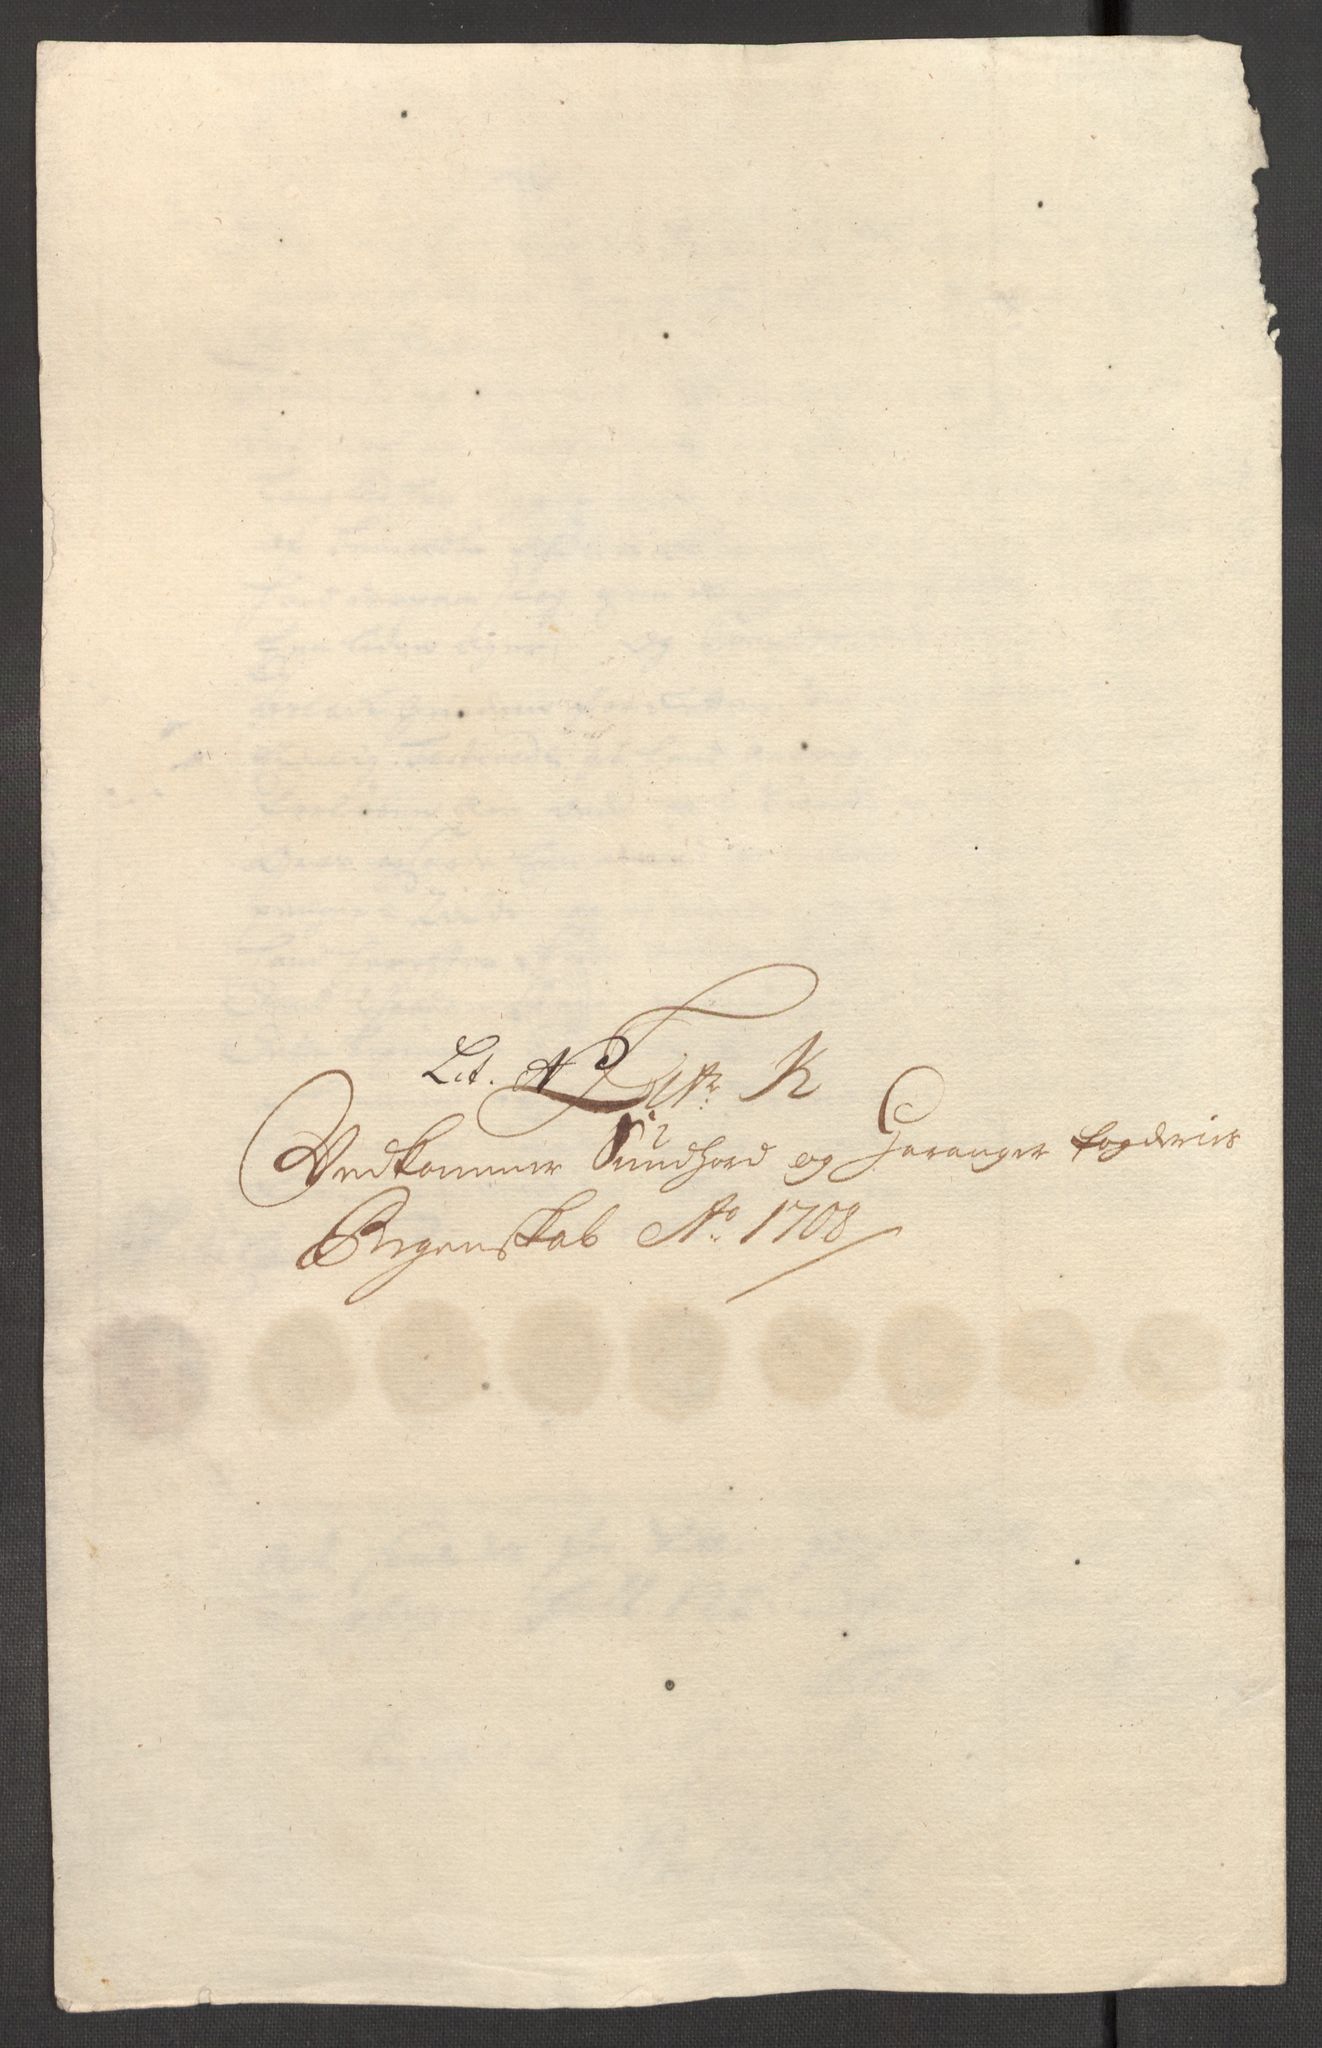 Lit. N Litr: K
Vedkommer Sundhord og Haranger fogderies
Regenskab Ao. 1708